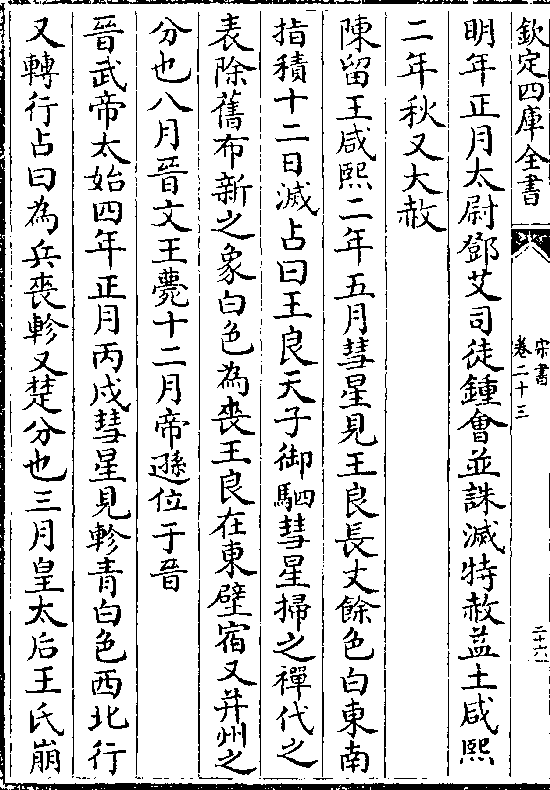 欽定四庫全書
宋書
卷二十三
二十六
明年正月太尉鄧艾司徒鍾會並誅滅特赦益土咸熙
二年秋又大赦
陳留王咸熙二年五月彗星見王良長丈餘色白東南
指積十二日滅占曰王良天子御駟彗星掃之禪代之
表除舊布新之象白色為喪王良在東壁宿又并州之
分也八月晉文王薨十二月帝遜位于晉
晉武帝太始四年正月丙戌彗星見軫青白色西北行
又轉行占曰為兵喪軫又楚分也三月皇太后王氏崩